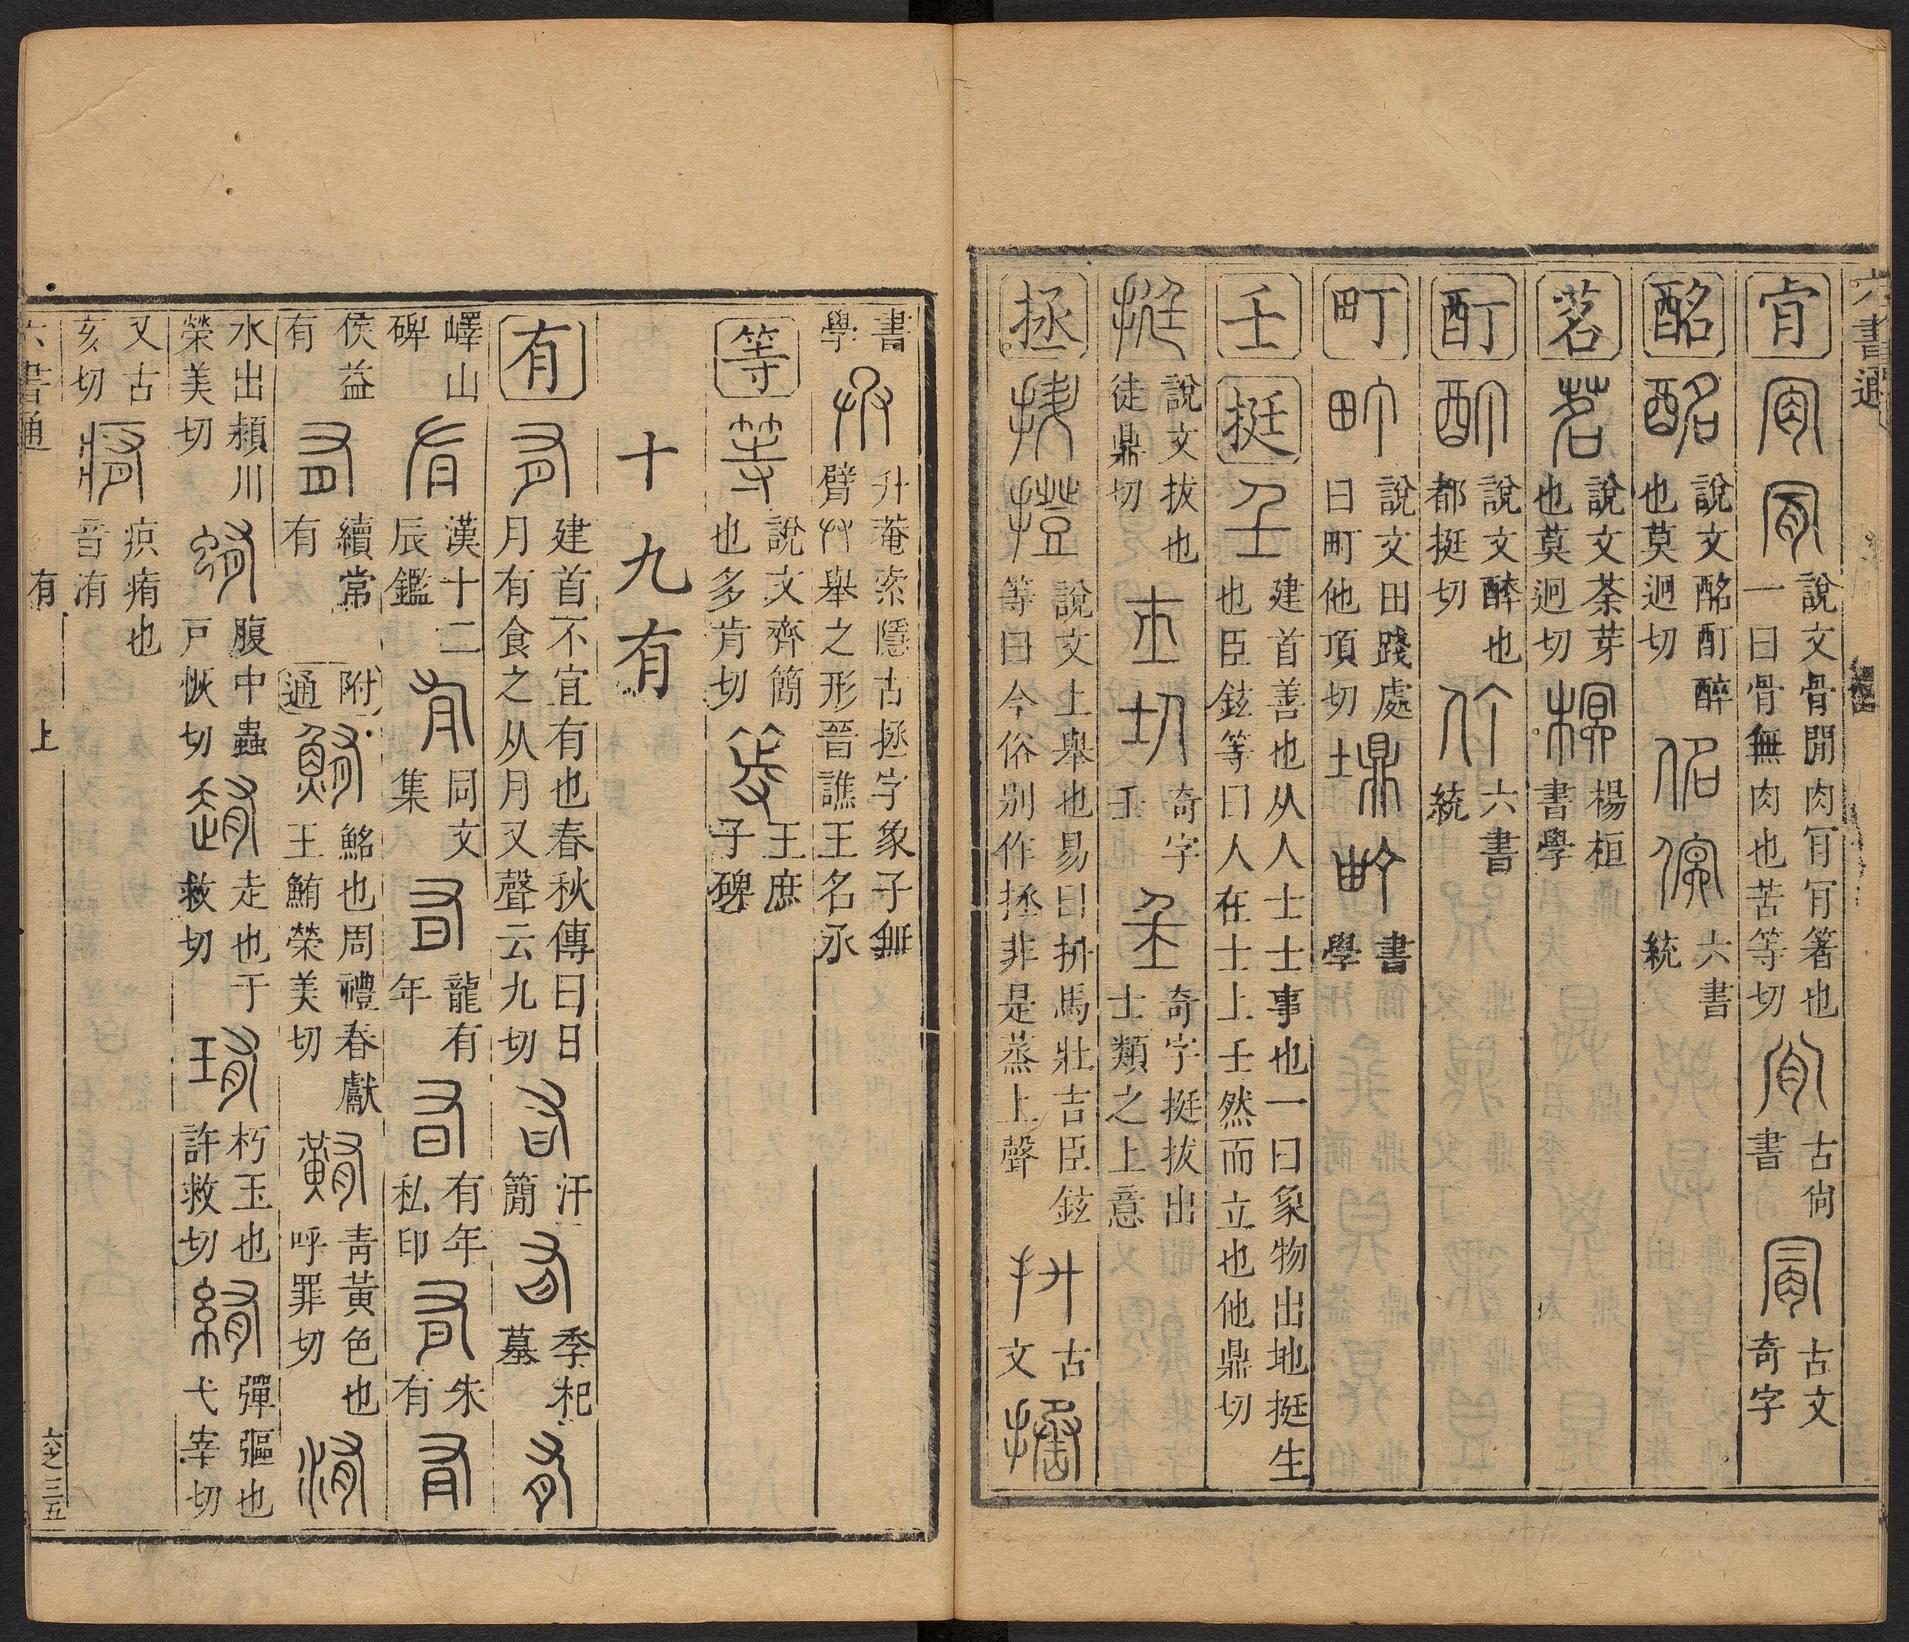 六書通
肯 說文骨閒肉肎肎箸也一曰骨無肉也苦等切 古尙書 古文奇字
酩 說文酩酊醉也莫迥切 六書統
茗 說文荼芽也莫迥切 楊桓書學
酊 說文醉也都挺切 六書統
町 說文田踐處曰町他頂切 書學
𡈼 挺 建首善也从人士士事也一曰象物出地挺生也臣鉉等曰人在士上𡈼然而立也他鼎切
說文拔也徒鼎切 奇字𡈼 奇字挺拔出士類之上意
拯 說文上舉也易曰拚馬壯吉臣鉉等曰今俗別作拯非是蒸上聲 古文
書學 升菴索隱古拯字象子無臂艸舉之形晉譙王名氶
等 說文齊簡也多肯切 王庶子碑
十九有
有 建首不宜有也春秋傳曰日月有食之从月又聲云九切 汗簡 季札墓
嶧山碑 漢十二辰鑑 同文集 龍有年 有年私印 朱有
侯益有 續常有 附通 鮥也周禮春獻王鮪榮美切 靑黃色也呼罪切
水出潁川榮美切 腹中蟲戸恢切 走也于救切 朽玉也許救切 彈彄也弋宰切
又古亥切 疻痏也音洧
六書通 有 上 六之三五